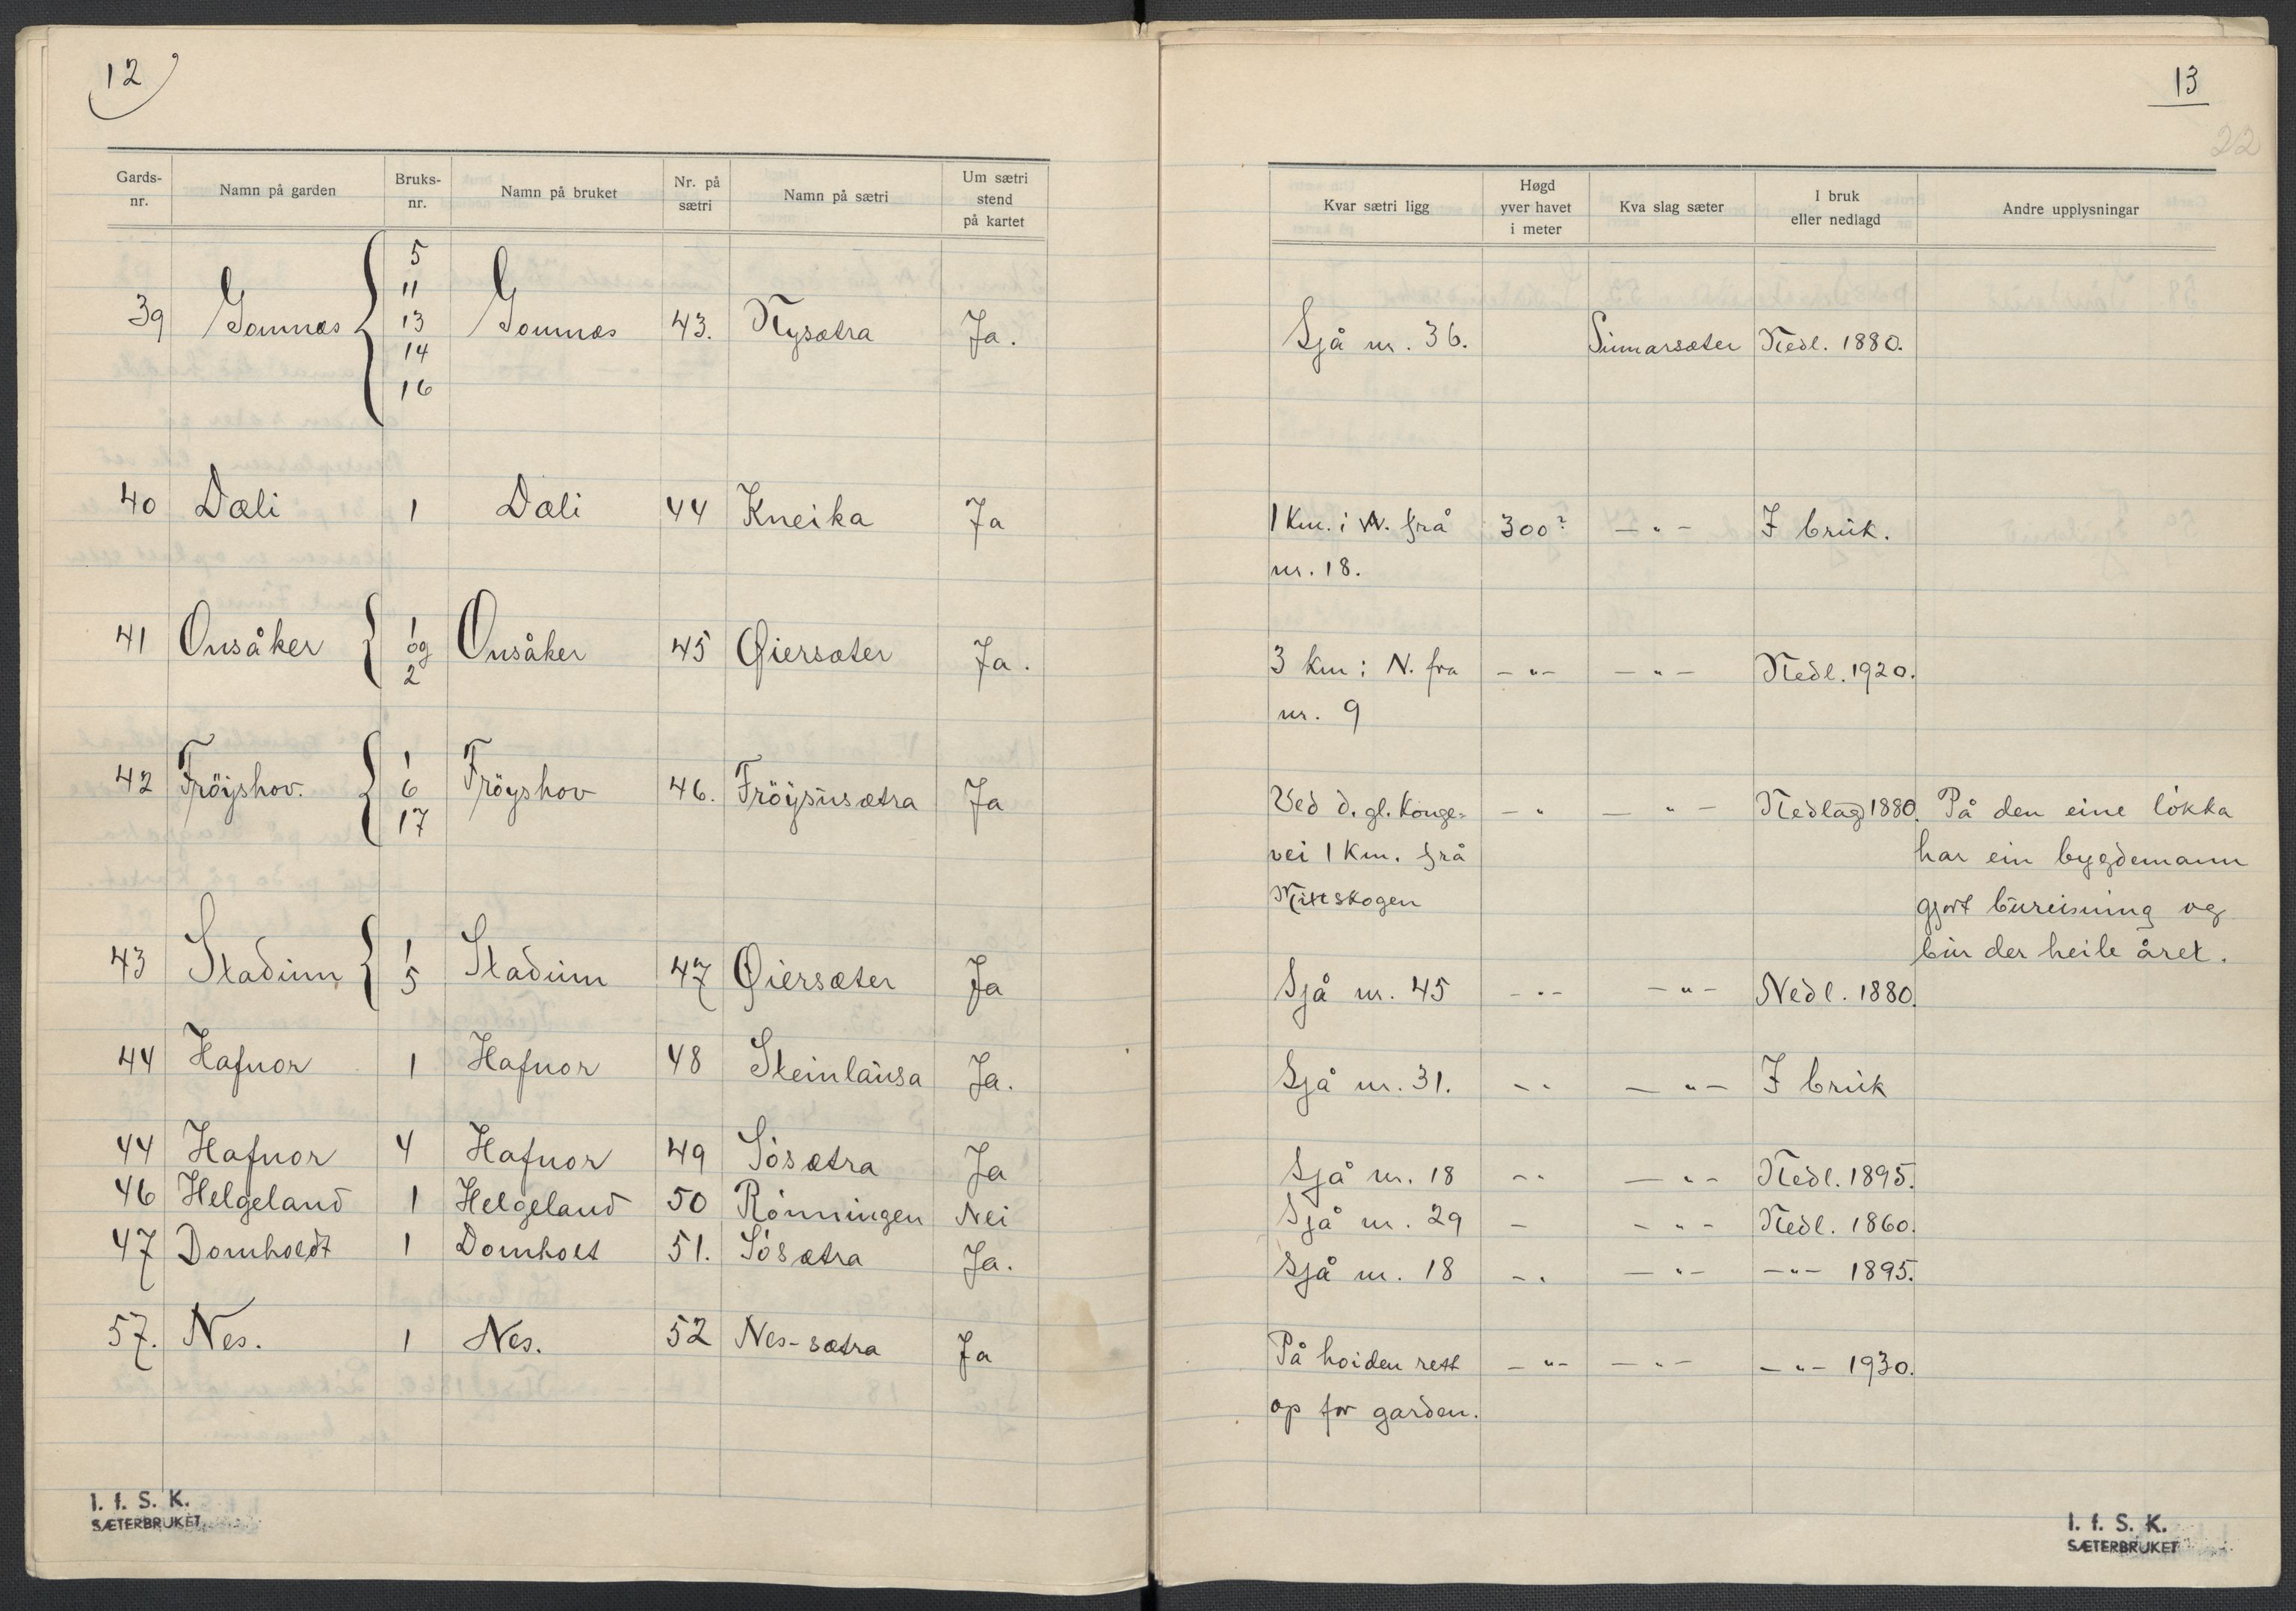 12
Gards-nr. Namn på garden Bruks-nr. Namn på bruket Nr. på sætri Namn på sætri Um sætri stend på kartet
39 Gomnæs { 5 11 13 14 16 Gomnæs 43. Nysætra Ja.
40 Dæli 1 Dæli 44 Kneika Ja
41 Onsåker { 1 og 2 Onsåker 45 Øiersæter Ja.
42 Fröyshov. { 1 6 17 Fröyshov 46. Fröysusætra Ja
43 Stadum { 1 5 Stadum 47 Øiersæter Ja
44 Hafnor 1 Hafnor 48 Steinlausa Ja.
44 Hafnor 4 Hafnor 49 Sösætra Ja
46 Helgeland 1 Helgeland 50 Rönningen Nei
47 Domholdt 1 Domholt 51. Sösætra Ja.
57. Nes. 1 Nes. 52 Nes-sætra Ja
I. f. S. K.
SÆTERBRUKET
13
22
Kvar sætri ligg Høgd yver havet i meter Kva slag sæter I bruk eller nedlagd Andre upplysningar
Sjå nr. 36. Sumarsæter Nedl. 1880.
1 Km. i N. frå 300? — " — I bruk.
nr. 18.
3 Km i N. fra — " — — " — Nedl. 1920.
nr. 9
Ved d. gl. Konge= — " — " — Nedlagd 1880. På den eine lökka
vei 1 Km. frå har ein bygdemann
skogen gjort bureisning og
bur der heile året.
Sjå nr. 45 — " — — " — Nedl. 1880.
Sjå nr. 31. — " — " — I bruk
Sjå nr. 18 — " — " — Nedl. 1895.
Sjå nr. 29 — — " — Nedl. 1860.
Sjå nr. 18 — " — " — — " — 1895.
På hoiden rett — " — — " — — " — 1930.
op for garden.
I. f. S. K.
SÆTERBRUKET